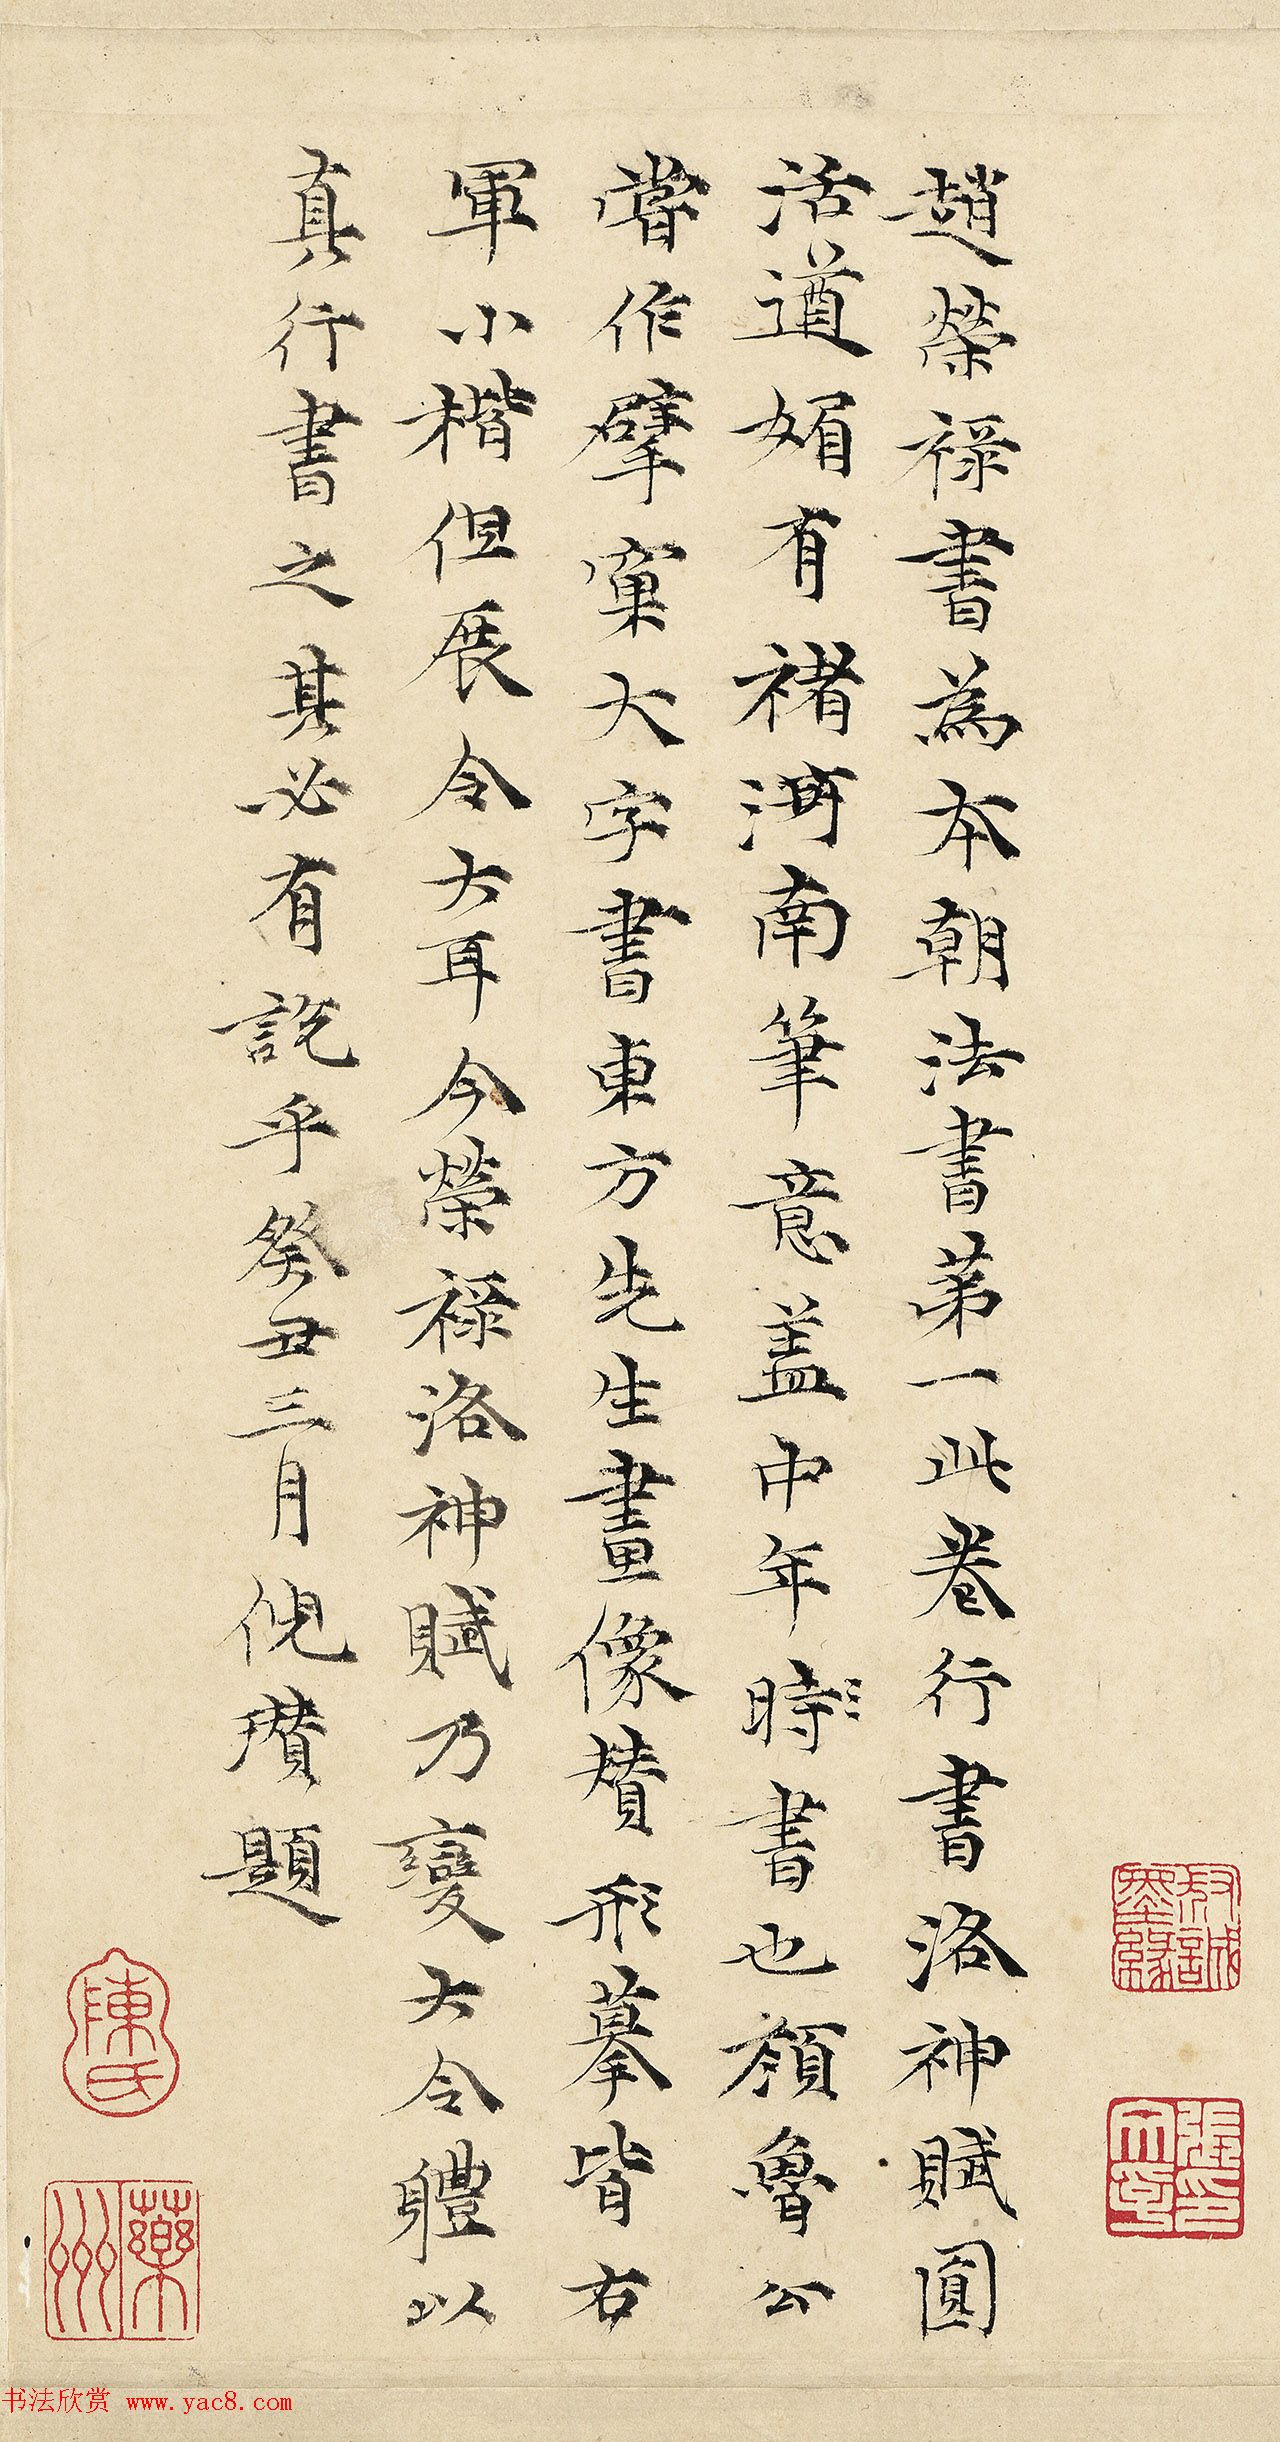 趙榮祿書為本朝法書第一此卷行書洛神賦圓
活遒媚有褚河南筆意蓋中年時書也顏魯公
嘗作擘窠大字書東方先生畫像賛形摹皆右
軍小楷但展令大耳今榮祿洛神賦乃變大令體以
真行書之其必有說乎癸丑三月倪瓚題
陳氏
藥洲
书法欣赏 www.yac8.com